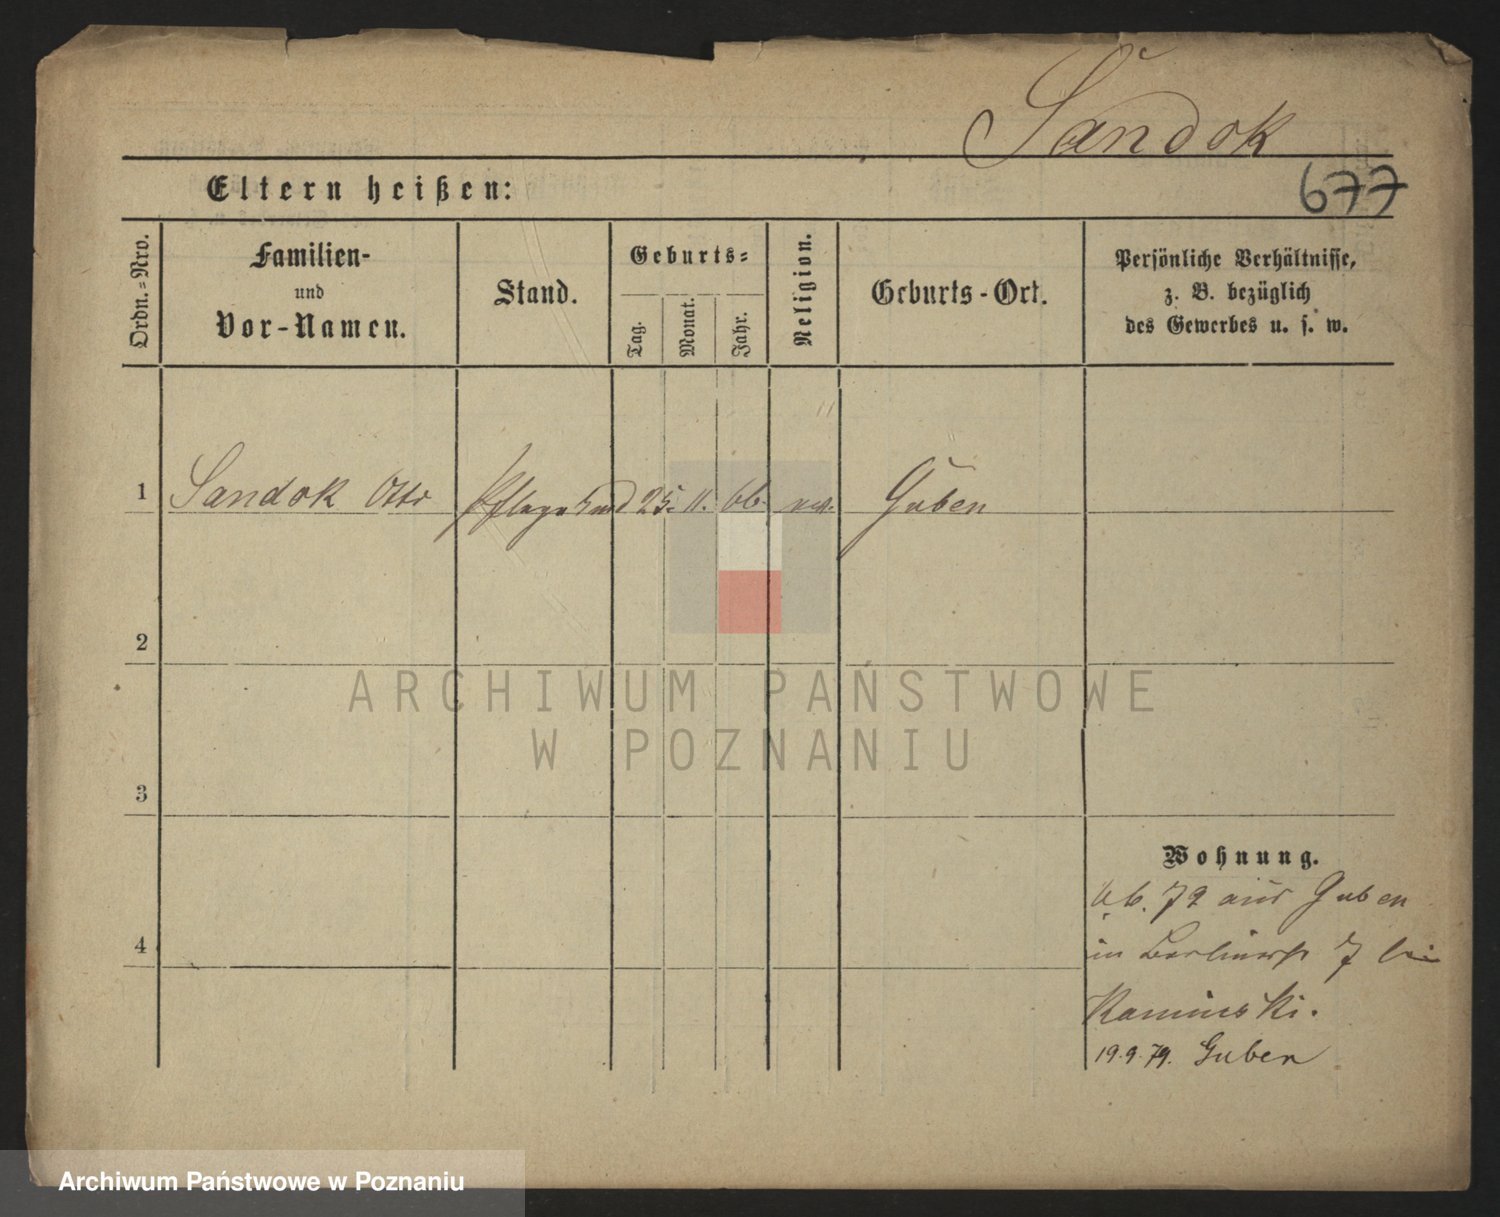 Sandok
677
Eltern heißen:
Ordn.=Nro.
Familien-
und
Vor-Namen.
Stand.
Geburts=
Tag.
Monat.
Jahr.
Religion.
Geburts-Ort.
Persönliche Verhältnisse,
z. B. bezüglich
des Gewerbes u. s. w.
1 Sandok Otto Pflegekind 25. 11. 66. Guben
2
ARCHIWUM PAŃSTWOWE
W POZNANIU
3
Wohnung.
79 aus Guben
4
in Berlinerstr 7 bei
Kaminski.
19.9.79. Guben
Archiwum Państwowe w Poznaniu